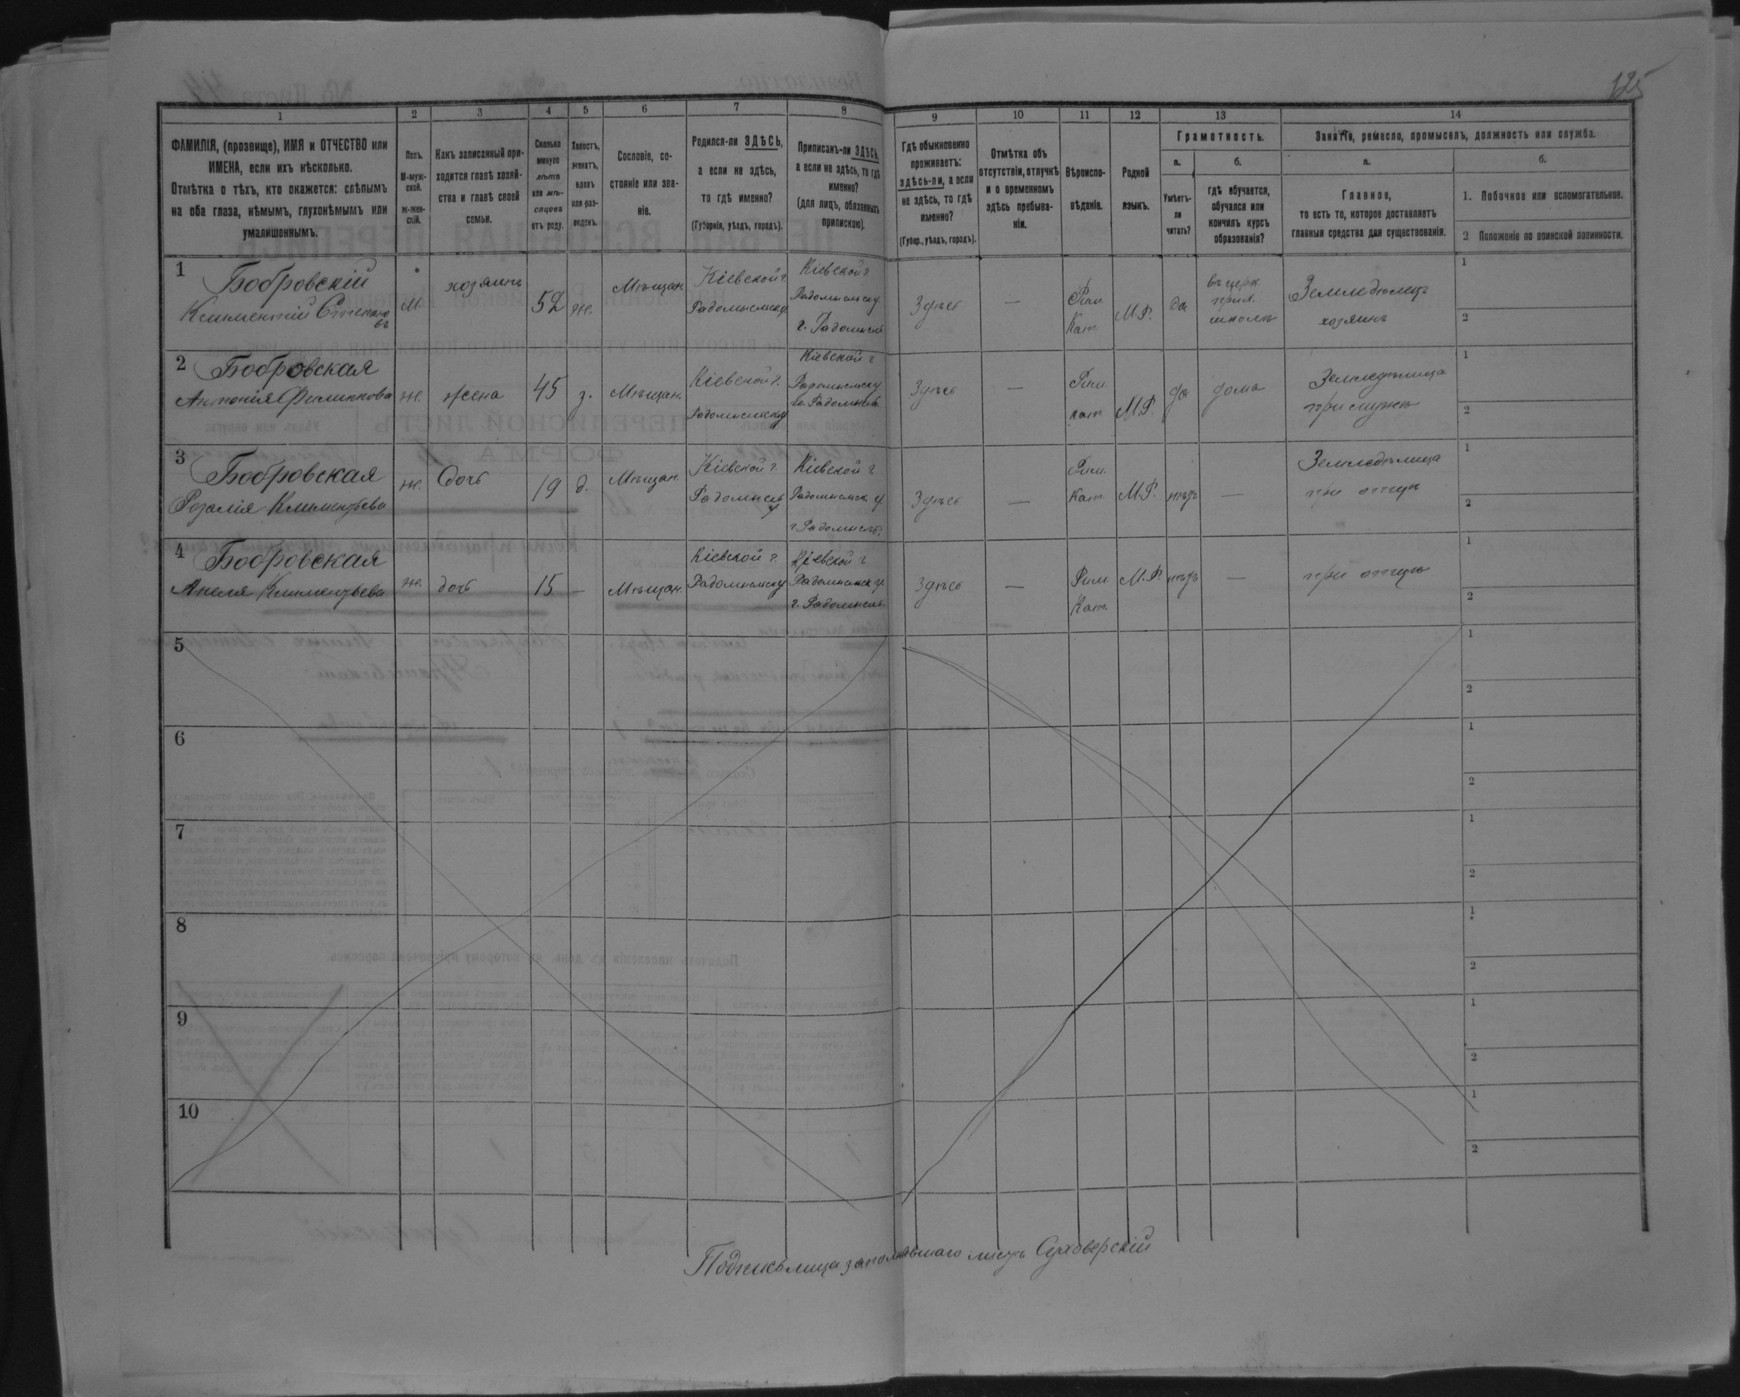 125
1 2 3 4 5 6 7 8 9 10 11 12 13 14
ФАМИЛІЯ, (прозвище), ИМЯ и ОТЧЕСТВО или
ИМЕНА, если ихъ нѣсколько.
Отмѣтка о тѣхъ, кто окажется: слѣпымъ
на оба глаза, нѣмымъ, глухонѣмымъ или
умалишеннымъ.
Полъ.
М-муж-
ской.
Ж-жен-
скій.
Какъ записанный при-
ходится главѣ хозяй-
ства и главѣ своей
семьи.
Сколько
минуло
лѣтъ
или мѣ-
сяцевъ
отъ роду.
Холостъ,
женатъ,
вдовъ
или раз-
веденъ.
Сословіе, со-
стояніе или зва-
ніе.
Родился-ли ЗДѢСЬ,
а если не здѣсь,
то гдѣ именно?
(Губернія, уѣздъ, городъ).
Приписанъ-ли ЗДѢСЬ,
а если не здѣсь, то гдѣ
именно?
(для лицъ, обязанныхъ
припискою).
Гдѣ обыкновенно
проживаетъ:
здѣсь-ли, а если
не здѣсь, то гдѣ
именно?
(Губер., уѣздъ, городъ).
Отмѣтка объ
отсутствіи, отлучкѣ
и о временномъ
здѣсь пребыва-
ніи.
Вѣроиспо-
вѣданіе.
Родной
языкъ.
Грамотность.
а.
Умѣетъ-
ли
читать?
б.
гдѣ обучается,
обучался или
кончилъ курсъ
образованія?
Занятіе, ремесло, промыселъ, должность или служба.
а.
Главное,
то есть то, которое доставляетъ
главныя средства для существованія.
б.
1. Побочное или вспомогательное.
2 Положеніе по воинской повинности.
1
Бобровскій
Климентій Степано
въ
М.
хозяинъ
52
ж.
Мѣщан.
Кіевской г.
Радомысльск у
Кіевской г
Радомысльск у
г. Радомысль
Здѣсь
—
Рим
Кат
М.Р.
да
въ церк
прих.
школѣ
Земледѣлецъ
хозяинъ
1
2
2
Бобровская
Антонія Филиппова
ж.
жена
45
з.
Мѣщан.
Кіевской г.
Радомысльск у
Кіевской г
Радомысльск у
г. Радомысль
Здѣсь
—
Рим
кат
М.Р.
да
дома
Земледѣлица
при мужѣ
1
2
3
Бобровская
Розалія Климентьева
ж.
дочь
19
д.
Мѣщан.
Кіевской г.
Радомысль
у
Кіевской г
Радомысльск у
г. Радомысль
Здѣсь
—
Рим.
Кат
М.Р.
нѣтъ
—
Земледѣлица
при отцѣ
1
2
4
Бобровская
Анеля Климентьева
ж.
дочь
15
—
Мѣщан.
Кіевской г.
Радомысльск у
Кіевской г
Радомысльск у
г. Радомысль
Здѣсь
—
Рим
Кат
М.Р.
нѣтъ
—
при отцѣ
1
2
5
1
2
6
1
2
7
1
2
8
1
2
9
1
2
10
1
2
Подпись лица заполнявшаго листъ Суховерскій